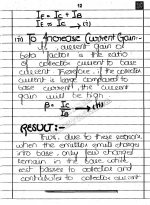 12
IE = IC + IB
IE ≈ IC → (1)
(ii) To Increase Current Gain:-
If, current gain or
beta factor is the ratio
of collector current to base
current. Therefore, if the collector
current is large compared to
base current, the current
gain will be high
β = IC / IB → (ii)
RESULT:-
Thus, due to these reasons
when the emitter emits charges
into base, only few charges
remain in the base while
rest passes to collector and
contributes to collector current